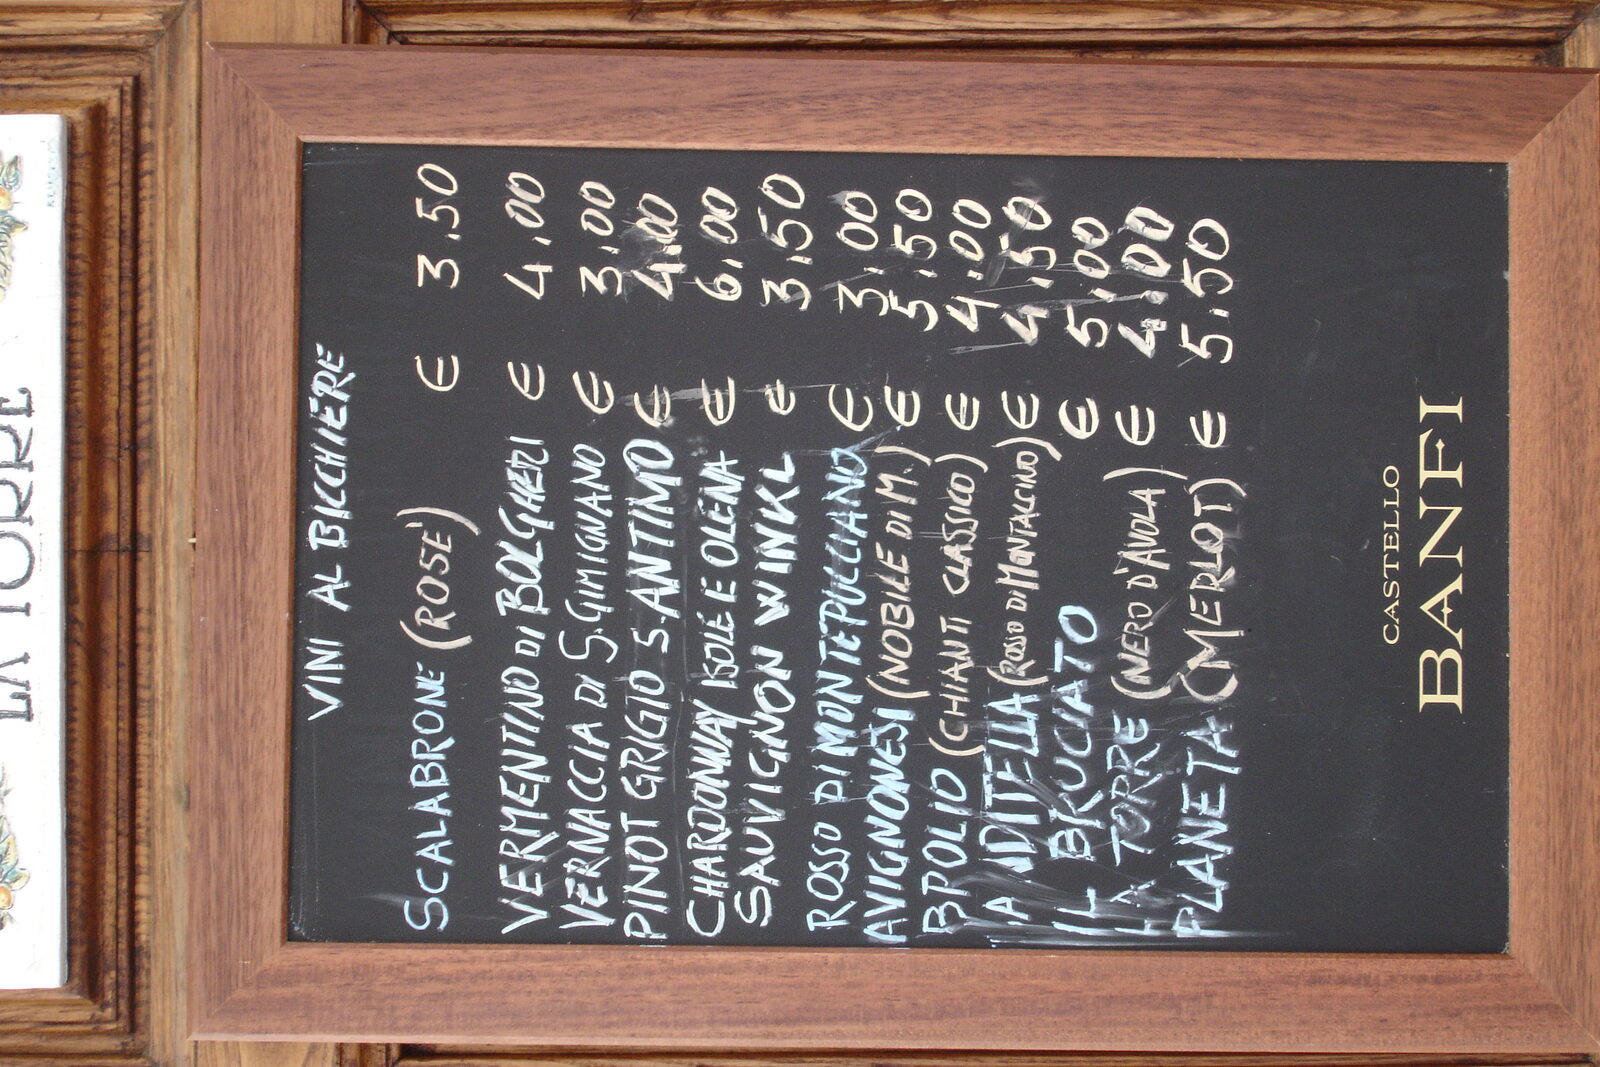 LA TORRE
VINI AL BICCHIERE
SCALABRONE (ROSE') € 3.50
VERMENTINO DI BOLGHERI € 4.00
VERNACCIA DI S.GIMIGNANO € 3.00
PINOT GRIGIO S.ANTIMO € 4.00
CHARDONNAY ISOLE E OLENA € 6.00
SAUVIGNON WINKL € 3.50
ROSSO DI MONTEPULCIANO € 3.00
AVIGNONESI (NOBILE DI M.) € 5.50
BPOLIO (CHIANTI CLASSICO) € 4.00
(ROSSO DI MONTALCINO) € 4.50
IL BRUCIATO € 5.00
LA TORRE (NERO D'AVOLA) € 4.00
PLANETA (MERLOT) € 5.50
CASTELLO
BANFI